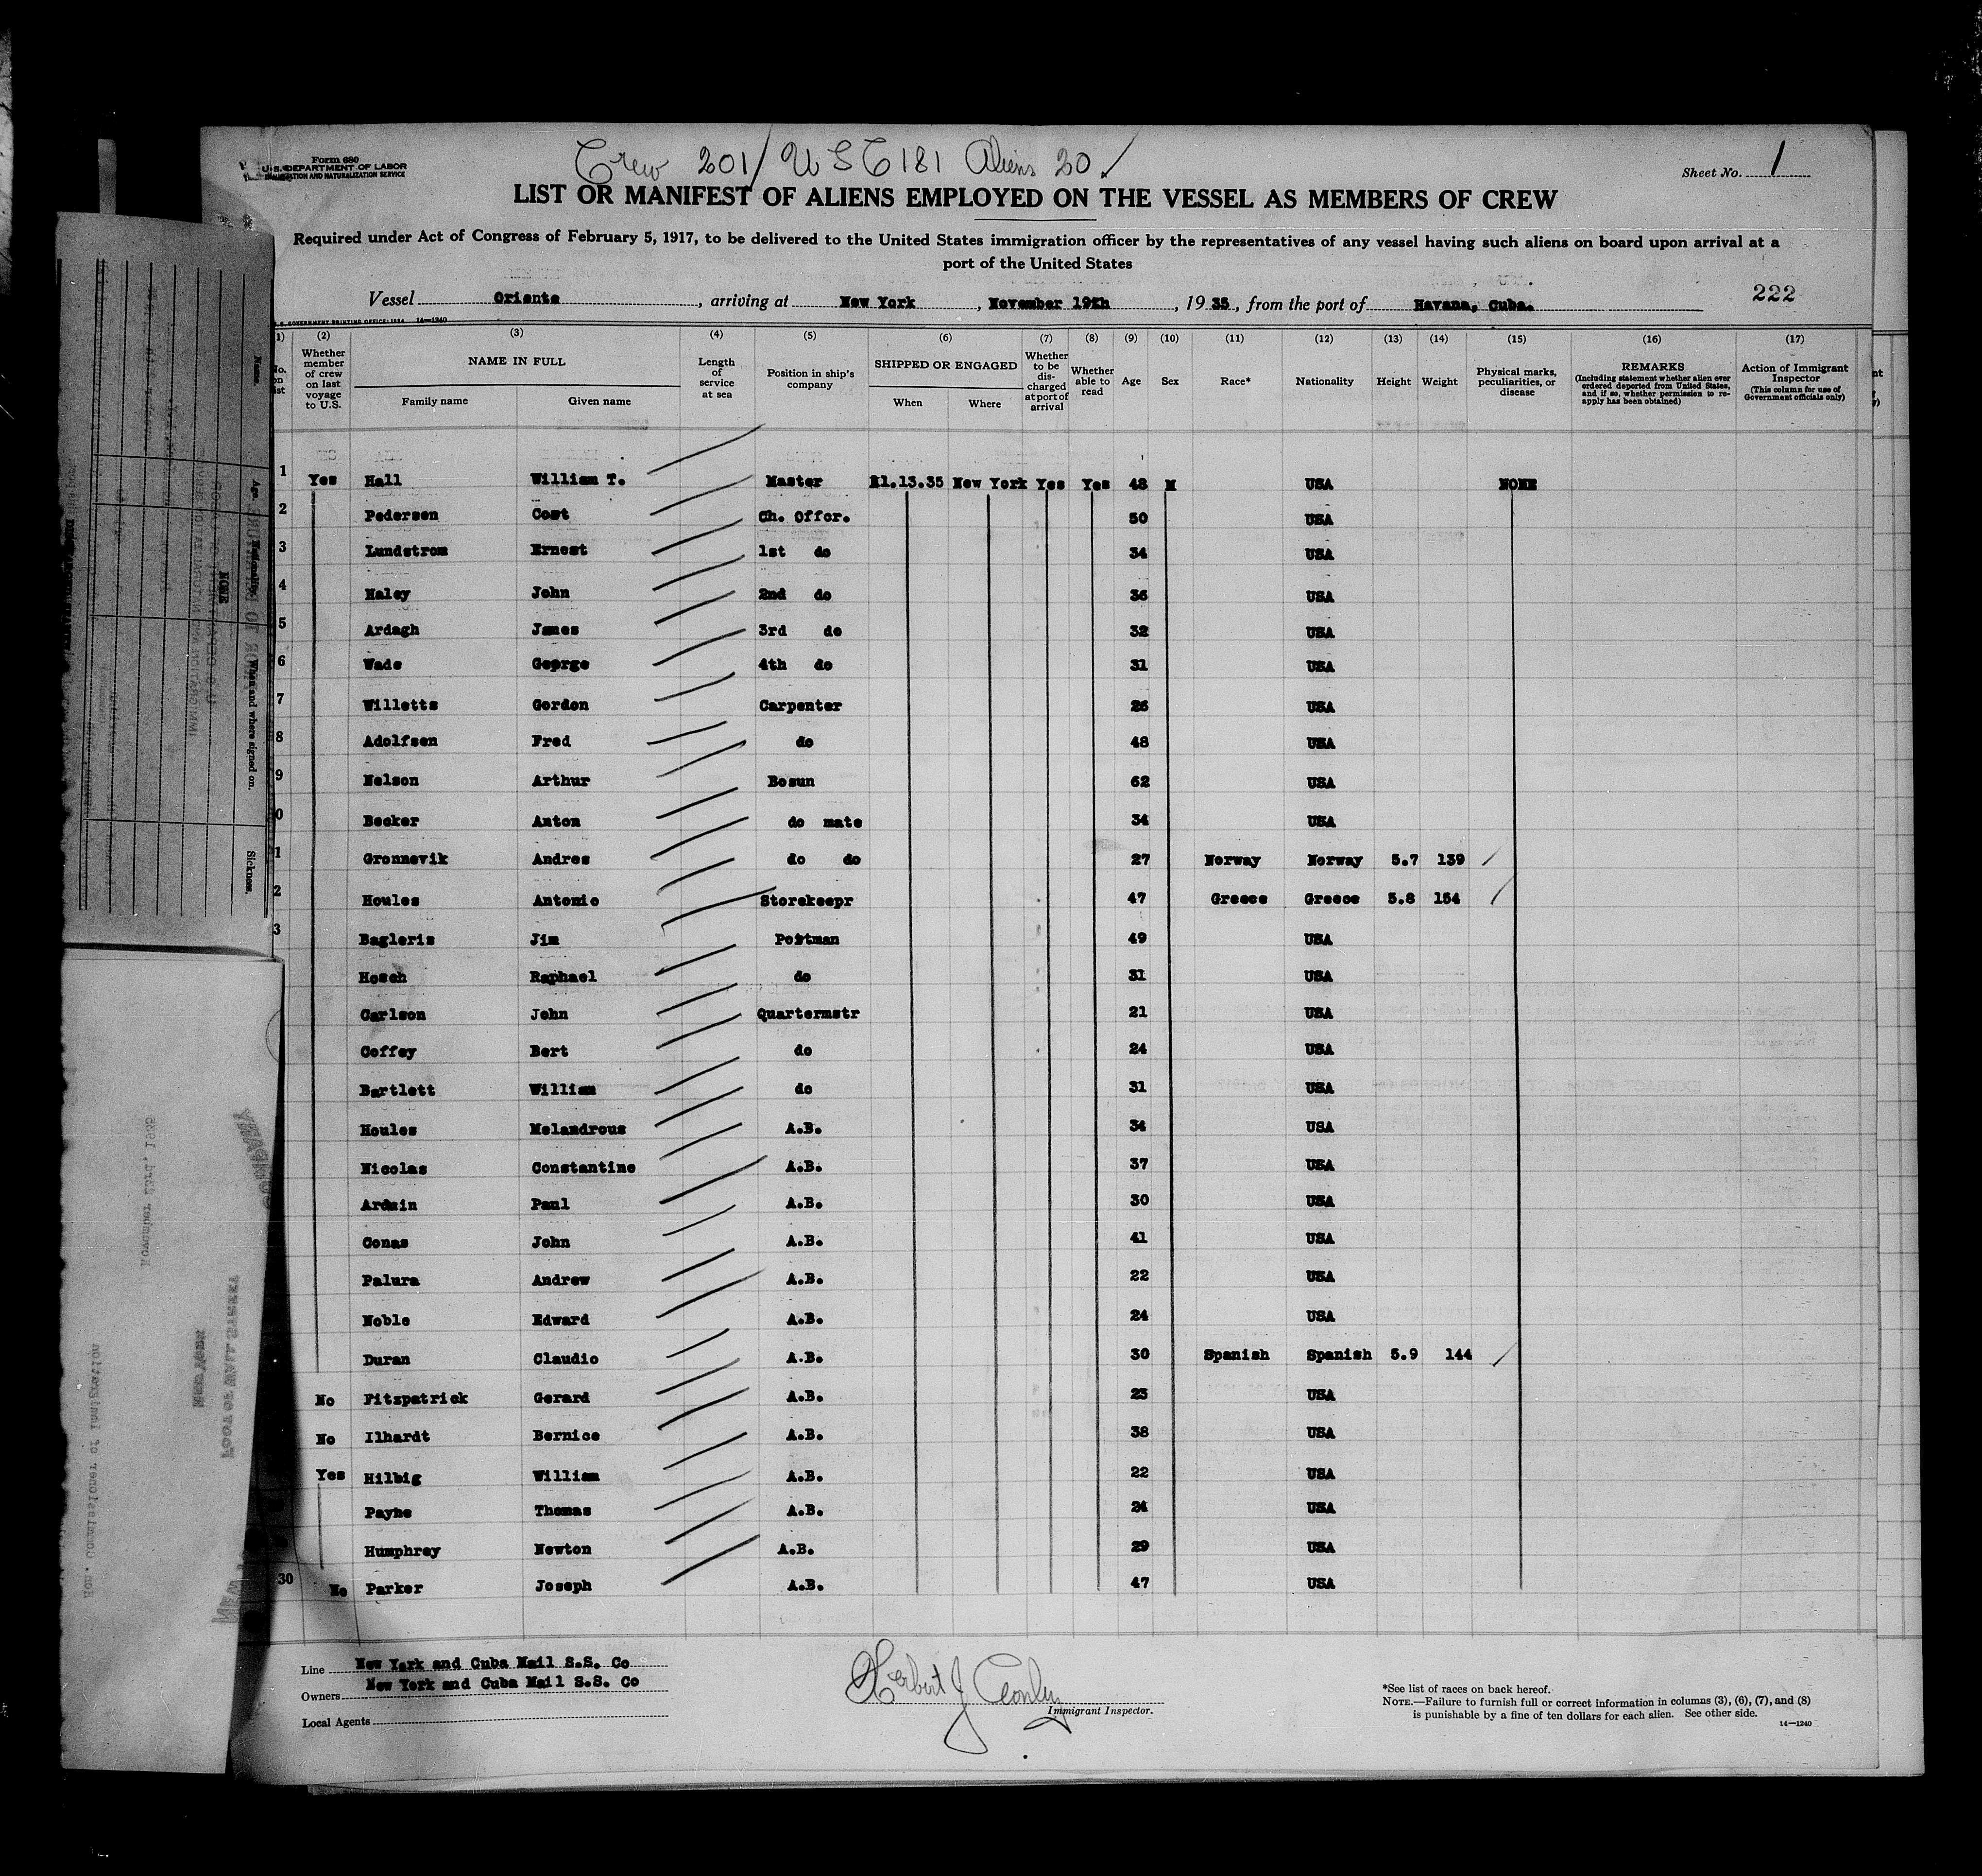 Form 680
U. S. DEPARTMENT OF LABOR
IMMIGRATION AND NATURALIZATION SERVICE
Crew 201/ USC 181 Aliens 20 ✓
Sheet No. 1
LIST OR MANIFEST OF ALIENS EMPLOYED ON THE VESSEL AS MEMBERS OF CREW
Required under Act of Congress of February 5, 1917, to be delivered to the United States immigration officer by the representatives of any vessel having such aliens on board upon arrival at a
port of the United States
Vessel Oriente, arriving at New York, November 19th, 19 35, from the port of Havana, Cuba.
222
U. S. GOVERNMENT PRINTING OFFICE: 1934 14—1240
(1) (2) (3) (4) (5) (6) (7) (8) (9) (10) (11) (12) (13) (14) (15) (16) (17)
No. on list
Whether member of crew on last voyage to U.S.
NAME IN FULL
Family name Given name
Length of service at sea
Position in ship's company
SHIPPED OR ENGAGED
When Where
Whether to be discharged at port of arrival
Whether able to read
Age
Sex
Race*
Nationality
Height
Weight
Physical marks, peculiarities, or disease
REMARKS
(Including statement whether alien ever ordered deported from United States, and if so, whether permission to reapply has been obtained)
Action of Immigrant Inspector
(This column for use of Government officials only)
1 Yes Hall William T. Master 11.13.35 New York Yes Yes 48 M USA NONE
2 Pedersen Cost Ch. Offcr. 50 USA
3 Lundstrom Ernest 1st do 34 USA
4 Haley John 2nd do 36 USA
5 Ardagh James 3rd do 32 USA
6 Wade George 4th do 31 USA
7 Willetts Gordon Carpenter 26 USA
8 Adolfsen Fred do 48 USA
9 Nelson Arthur Bosun 62 USA
0 Becker Anton do mate 34 USA
1 Gronnevik Andres do do 27 Norway Norway 5.7 139
2 Houles Antonio Storekeepr 47 Greece Greece 5.8 154
3 Bagleris Jim Postman 49 USA
Hosch Raphael do 31 USA
Carlson John Quartermstr 21 USA
Coffey Bert do 24 USA
Bartlett William do 31 USA
Houles Melandrous A.B. 34 USA
Nicolas Constantine A.B. 37 USA
Armin Paul A.B. 30 USA
Conas John A.B. 41 USA
Palura Andrew A.B. 22 USA
Noble Edward A.B. 24 USA
Duran Claudio A.B. 30 Spanish Spanish 5.9 144
No Fitzpatrick Gerard A.B. 23 USA
No Ilhardt Bernice A.B. 38 USA
Yes Hilbig William A.B. 22 USA
Payne Thomas A.B. 24 USA
Humphrey Newton A.B. 29 USA
30 No Parker Joseph A.B. 47 USA
Line New York and Cuba Mail S.S. Co
Owners New York and Cuba Mail S.S. Co
Local Agents
Herbert J Conley
Immigrant Inspector.
*See list of races on back hereof.
NOTE.—Failure to furnish full or correct information in columns (3), (6), (7), and (8)
is punishable by a fine of ten dollars for each alien. See other side.
14—1240
Name.
Age.
Nationality.
When and where signed on.
Sickness.
NONE
November 23rd, 1935
Hon. Commissioner of Immigration
New York
FOOT OF WALL STREET